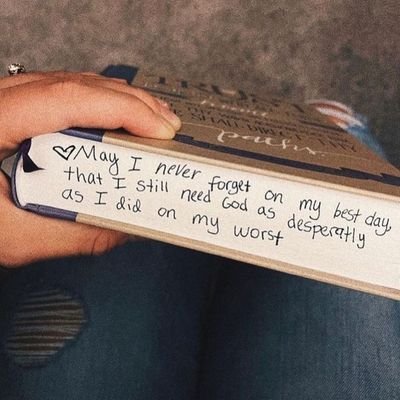 ♡May I never forget on my best day,
that I still need God as desperatly
as I did on my worst
TRUST
paths.